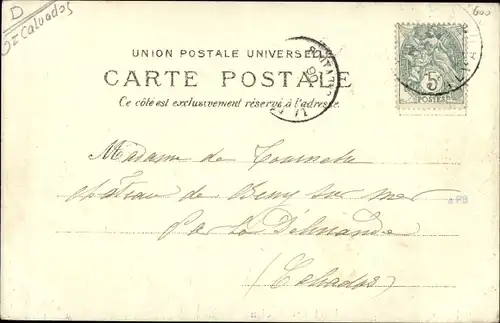 D
Calvados
600
UNION POSTALE UNIVERSELLE
CARTE POSTALE
Ce côté est exclusivement réservé à l'adresse.
5c
POSTES
Madame de
château de Beny sur mer
par la Délivrande
(Calvados)